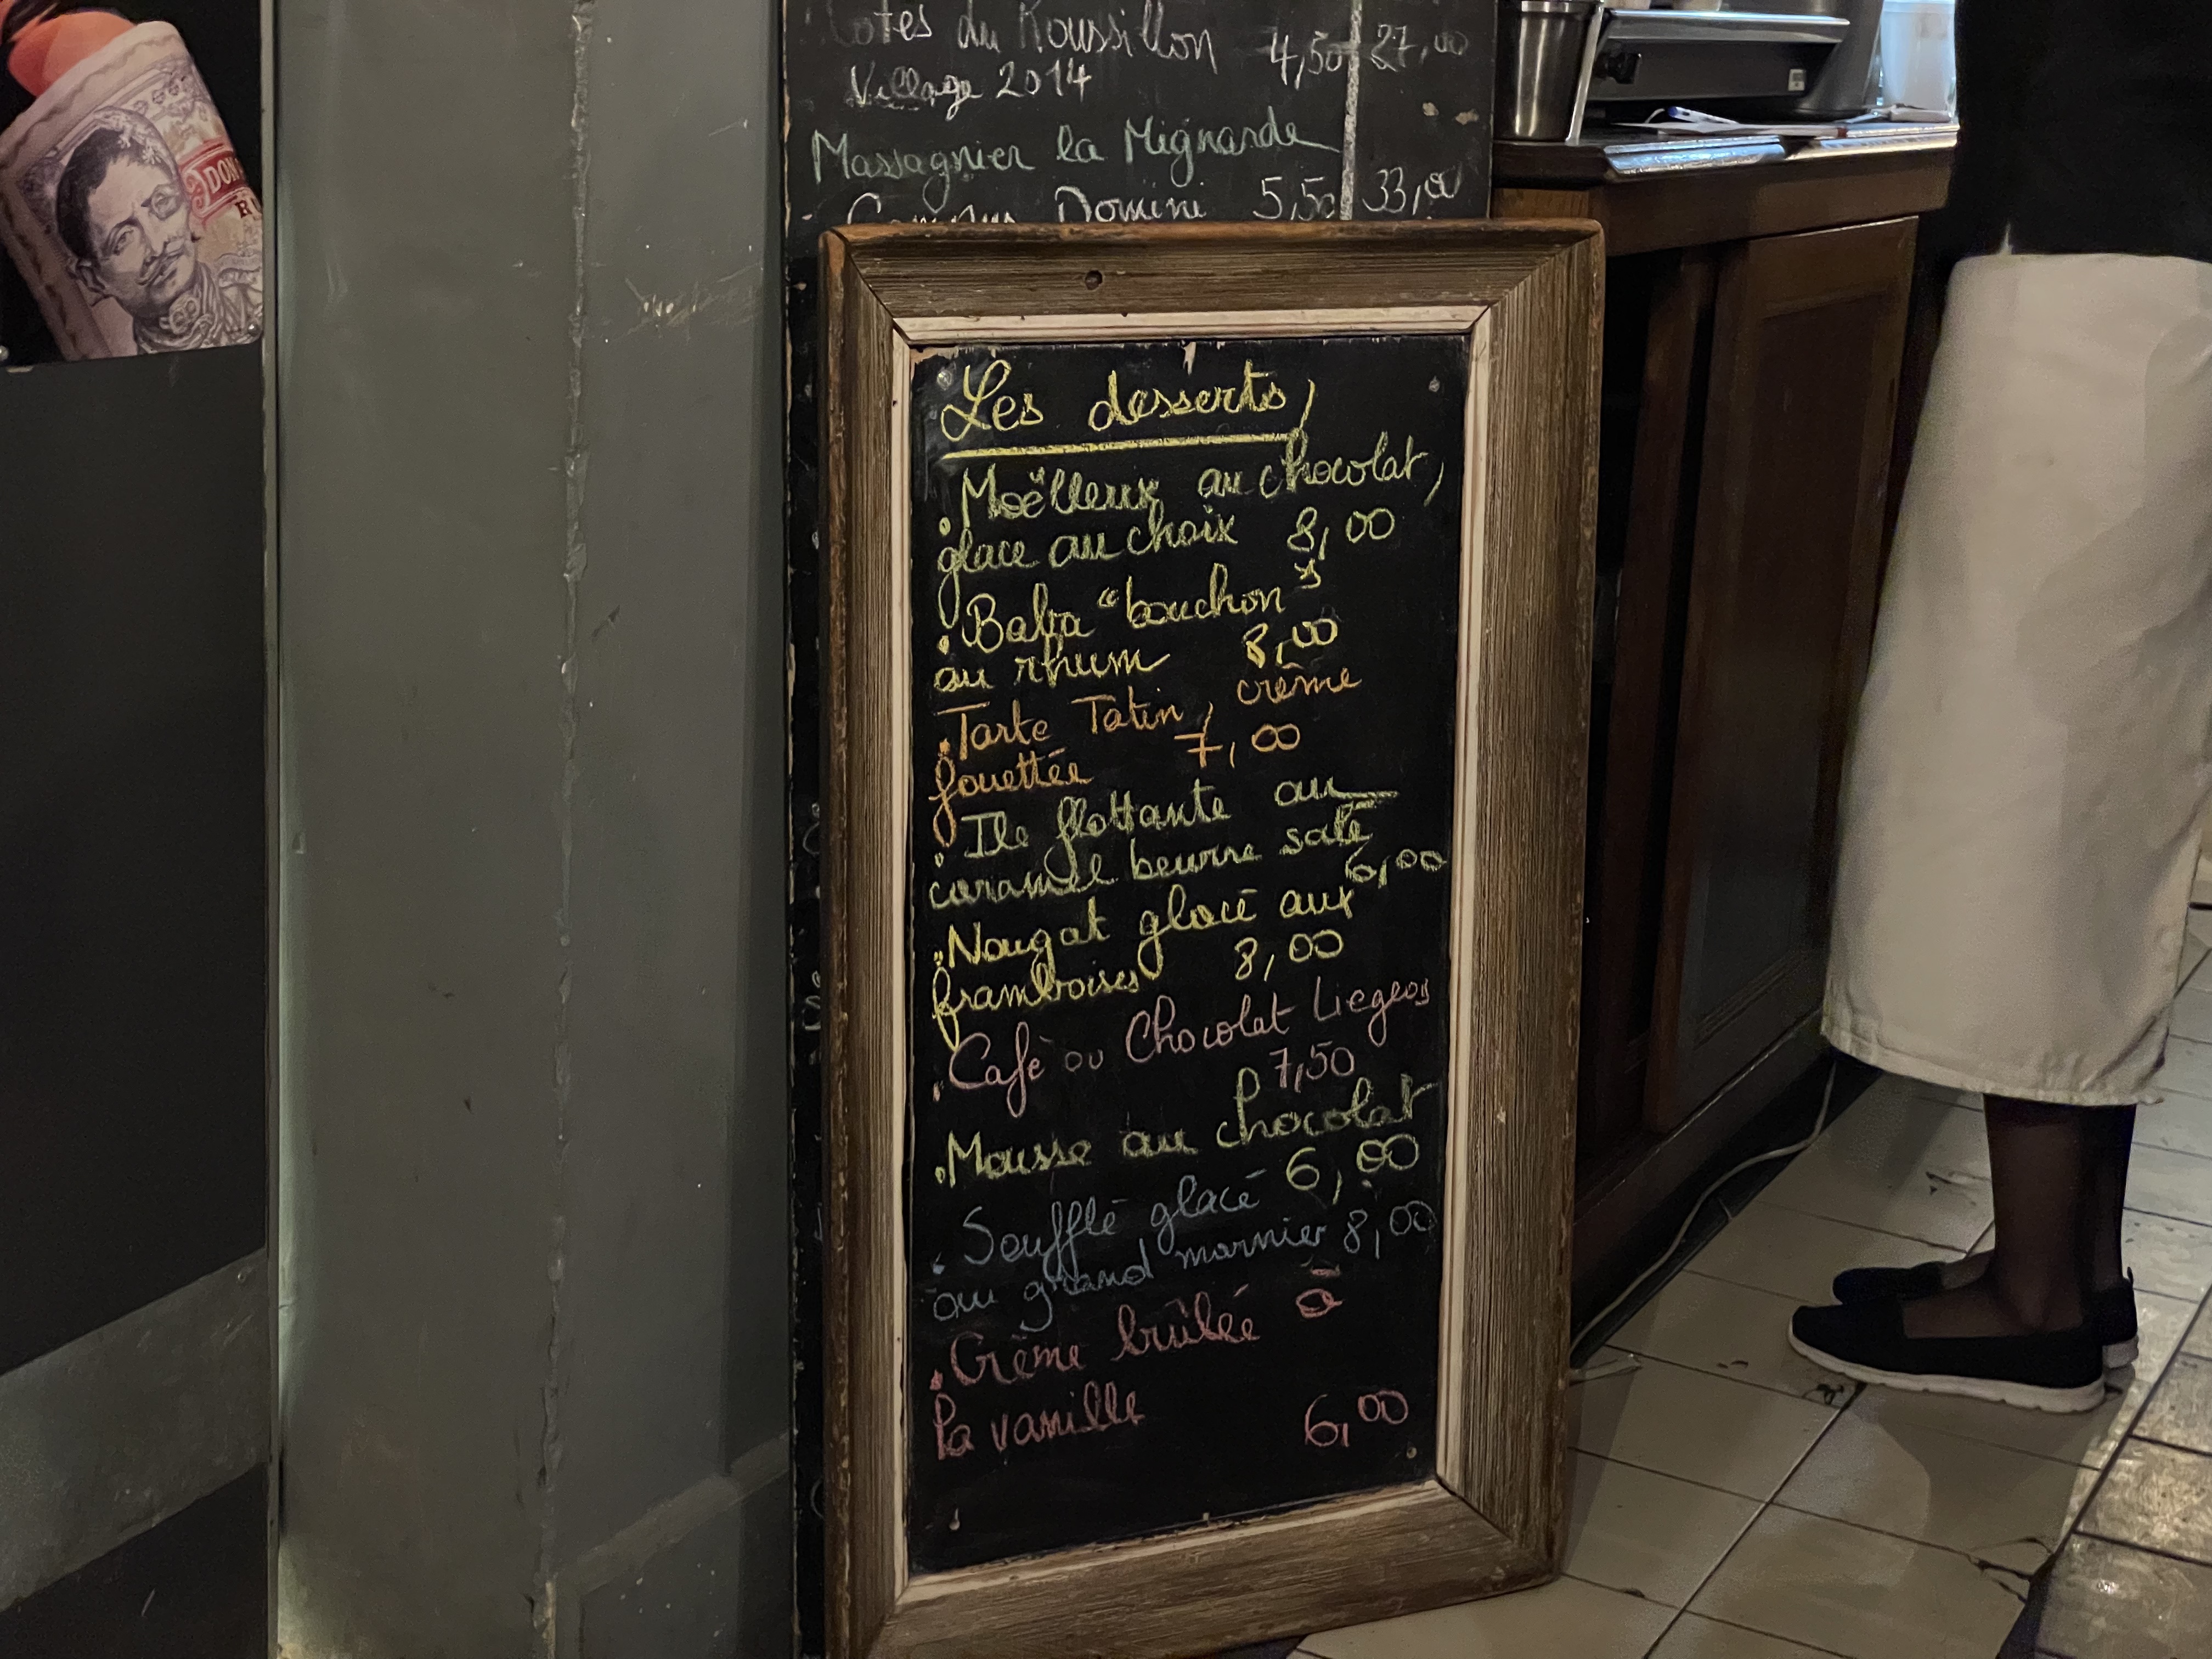 Cotes du Roussillon 4,50 27,00
Village 2014
Massagnier la Mignarde
Domini 5,50 33,00
Les desserts,
. Moëlleux au chocolat,
glace au choix 8,00
. Baba "bouchon"
au rhum 8,00
. Tarte Tatin, crème
fouettée 7,00
. Ile flottante au
caramel beurre salé
6,00
. Nougat glacé aux
framboises 8,00
. Café ou Chocolat Liegeos
7,50
. Mousse au chocolat
6,00
. Soufflé glacé
au grand marnier 8,00
. Crème brûlée à
la vanille 6,00
DON